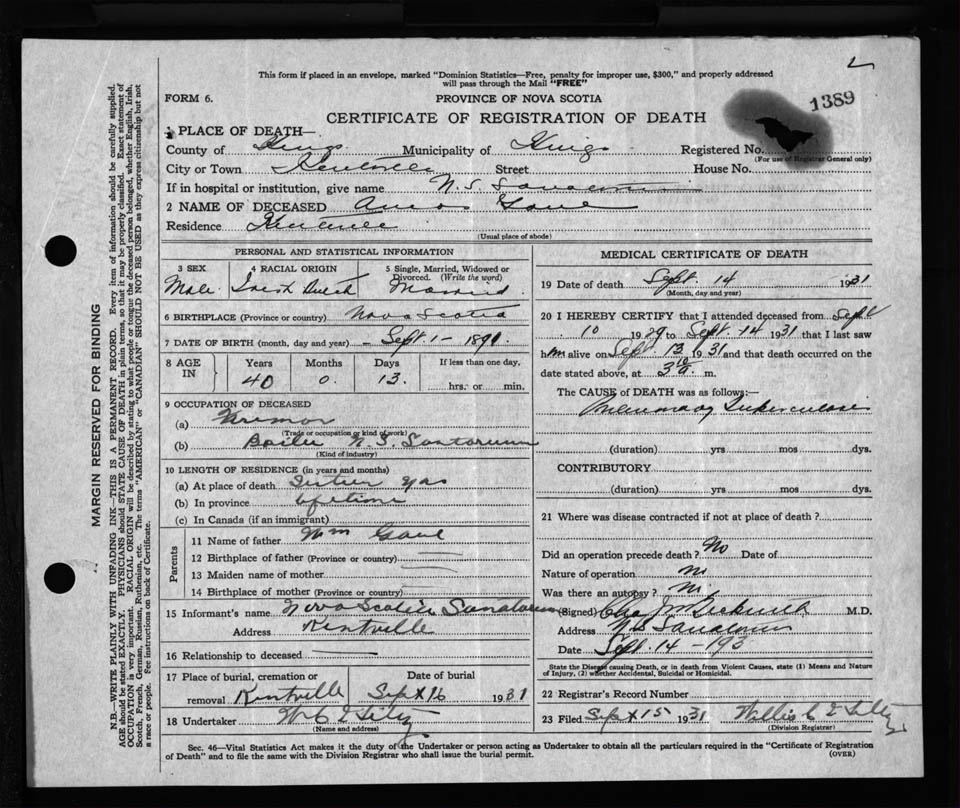 This form if placed in an envelope, marked "Dominion Statistics—Free, penalty for improper use, $300," and properly addressed
will pass through the Mail "FREE"
FORM 6.
PROVINCE OF NOVA SCOTIA
1389
CERTIFICATE OF REGISTRATION OF DEATH
1 PLACE OF DEATH—
County of Kings Municipality of Kings Registered No.
(For use of Registrar General only)
City or Town Kentville Street House No.
If in hospital or institution, give name N. S. Sanatorium
2 NAME OF DECEASED Amos
Residence Kentville
(Usual place of abode)
PERSONAL AND STATISTICAL INFORMATION
3 SEX 4 RACIAL ORIGIN 5 Single, Married, Widowed or Divorced. (Write the word)
Male Married
6 BIRTHPLACE (Province or country) Nova Scotia
7 DATE OF BIRTH (month, day and year) – Sept 1 – 1891
8 AGE IN Years Months Days If less than one day,
40 0 13 hrs. or min.
9 OCCUPATION OF DECEASED
(a)
(Trade or occupation or kind of work)
(b) N. S. Sanatorium
(Kind of industry)
10 LENGTH OF RESIDENCE (in years and months)
(a) At place of death
(b) In province
(c) In Canada (if an immigrant)
Parents
11 Name of father Wm
12 Birthplace of father (Province or country)
13 Maiden name of mother
14 Birthplace of mother (Province or country)
15 Informant's name Nova Scotia Sanatorium
Address Kentville
16 Relationship to deceased
17 Place of burial, cremation or removal Kentville Date of burial Sept 16 1931
18 Undertaker
(Name and address)
MEDICAL CERTIFICATE OF DEATH
19 Date of death Sept 14 1931
(Month, day and year)
20 I HEREBY CERTIFY that I attended deceased from Sept
10 1929 to Sept 14 1931 that I last saw
him alive on Sept 13 1931 and that death occurred on
date stated above, at m.
The CAUSE of DEATH was as follows:—
Pulmonary Tuberculosis
(duration) yrs mos dys.
CONTRIBUTORY
(duration) yrs mos dys.
21 Where was disease contracted if not at place of death?
Did an operation precede death? No Date of
Nature of operation
Was there an autopsy?
(Signed) M.D.
Address N S Sanatorium
Date Sept. 14 – 193
State the Disease causing Death, or in death from Violent Causes, state (1) Means and Nature
of Injury, (2) whether Accidental, Suicidal or Homicidal.
22 Registrar's Record Number
23 Filed Sept 15 1931
(Division Registrar)
Sec. 46—Vital Statistics Act makes it the duty of the Undertaker or person acting as Undertaker to obtain all the particulars required in the "Certificate of Registration
of Death" and to file the same with the Division Registrar who shall issue the burial permit.
(OVER)
MARGIN RESERVED FOR BINDING
N.B.—WRITE PLAINLY WITH UNFADING INK—THIS IS A PERMANENT RECORD. Every item of information should be carefully supplied.
AGE should be stated EXACTLY. PHYSICIANS should STATE CAUSE OF DEATH in plain terms, so that it may be properly classified. Exact statement of
OCCUPATION is very important. RACIAL ORIGIN will be described by stating to what people or tongue the deceased person belonged, whether English, Irish,
Scotch, French, German, Russian, Ruthenian, etc. The terms "AMERICAN" or "CANADIAN" SHOULD NOT BE USED as they express citizenship but not
a race or people. Fee instructions on back of Certificate.